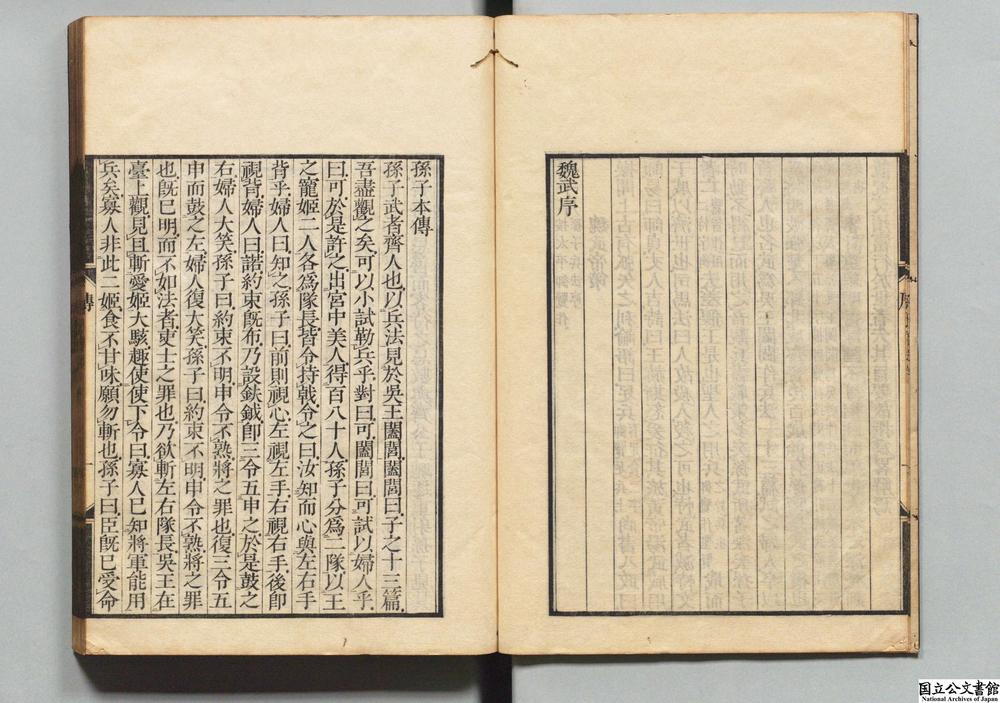 魏武序
序
孫子本傳
孫子武者齊人也以兵法見於吳王闔閭闔閭曰子之十三篇
吾盡觀之矣可以小試勒兵乎對曰可闔閭曰可試以婦人乎
曰可於是許之出宮中美人得百八十人孫子分爲二隊以王
之寵姬二人各爲隊長皆令持戟令之曰汝知而心與左右手
背乎婦人曰知之孫子曰前則視心左視左手右視右手後即
視背婦人曰諾約束既布乃設鈇鉞即三令五申之於是鼓之
右婦人大笑孫子曰約束不明申令不熟將之罪也復三令五
申而鼓之左婦人復大笑孫子曰約束不明申令不熟將之罪
也既已明而不如法者吏士之罪也乃欲斬左右隊長吳王在
臺上觀見且斬愛姬大駭趣使使下令曰寡人已知將軍能用
兵矣寡人非此二姬食不甘味願勿斬也孫子曰臣既已受命
傳
一
国立公文書館
National Archives of Japan